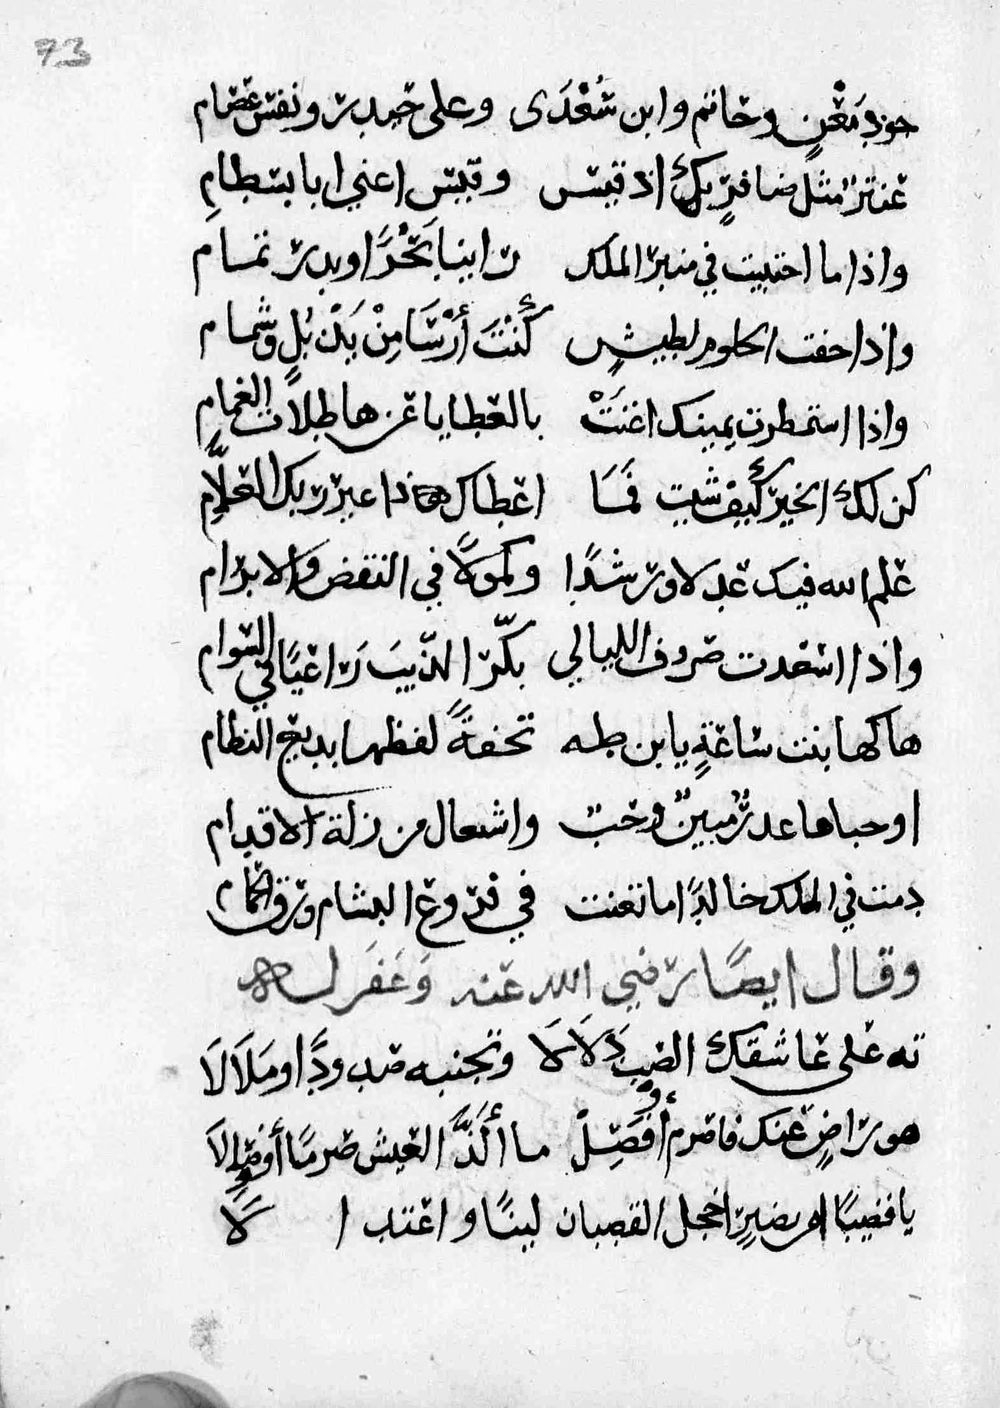 73
جود مَعْنٍ وحاتم وابن سُعْدَى وعلى حيدر ونفس عصام
عنتر مثل ضافر بك اذ قيس وقيس اعني ابا بسطامِ
واذا ما احتبيت في منبر الملك راينا بَحْرًا وبدر تمام
واذا خفت الحلوم لطيشٍ كُنْتَ أَرْسَا مِنْ يَذْبُلٍ وشمام
واذا استمطرت يمينك اغنَتْ بالعطايا عن هاطلات الغمامِ
كن لك الخير كَيْفَ شيت فَمَا اعطاك هاذا غير ربك العلَّامِ
علم الله فيك عدلا ورشدًا وكمولًا في النقض والابرام
واذا اسعدت صروف الليالي بكّر الذّيبَ رَاعيًا في السوام
هاكها بنت ساعةٍ يا بن طه تحفةً لفظها بديع النظام
اوحباها عذرٌ مبينٌ وحب واشعال من زلة الاقدام
دمت في الملك خالدًا ما تغنت في فروع البشام ورق الحمام
وقال ايضًا رضي الله عنه وَغَفَر له
ته على عاشقك الصب دَلَالَا وتجنبه صدودًا ومَلَالَا
هو راضٍ عنك فاصرم أَوْ فَصِلْ ما أَلَذَّ العيش صرمًا أو وِصِالَا
يا قضيبًا من نضيرٍ اخجل القضبان لينًا واعتدالَا